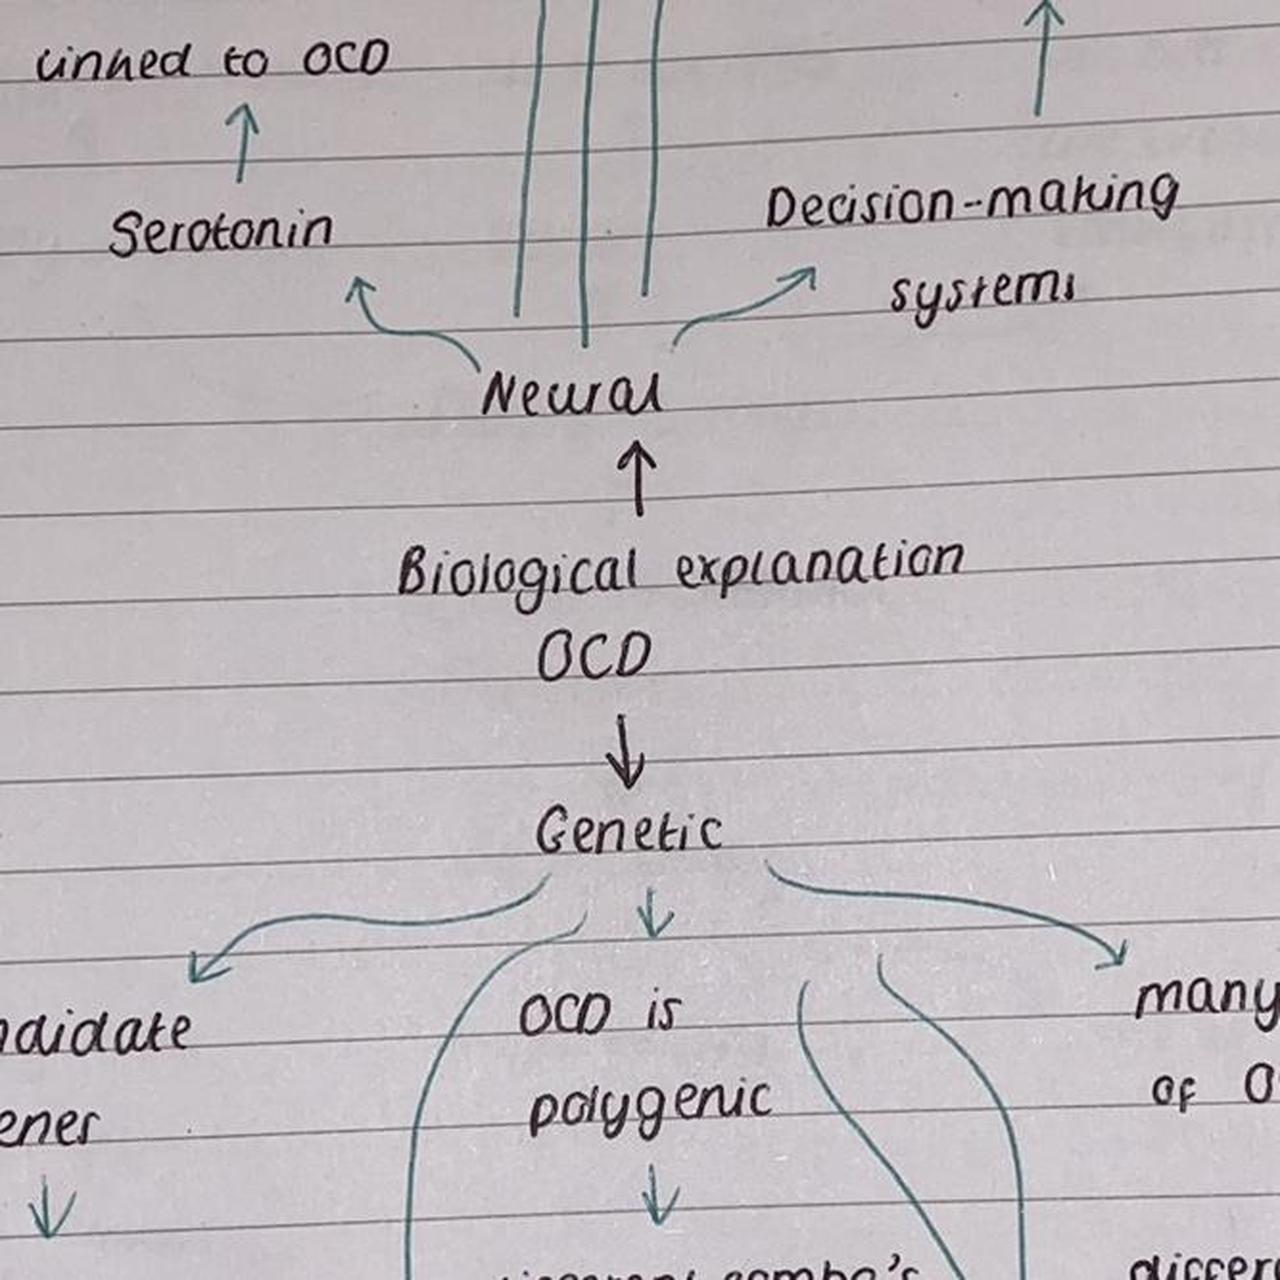 linked to OCD
Serotonin
Decision-making
systems
Neural
Biological explanation
OCD
Genetic
OCD is
polygenic
many
of